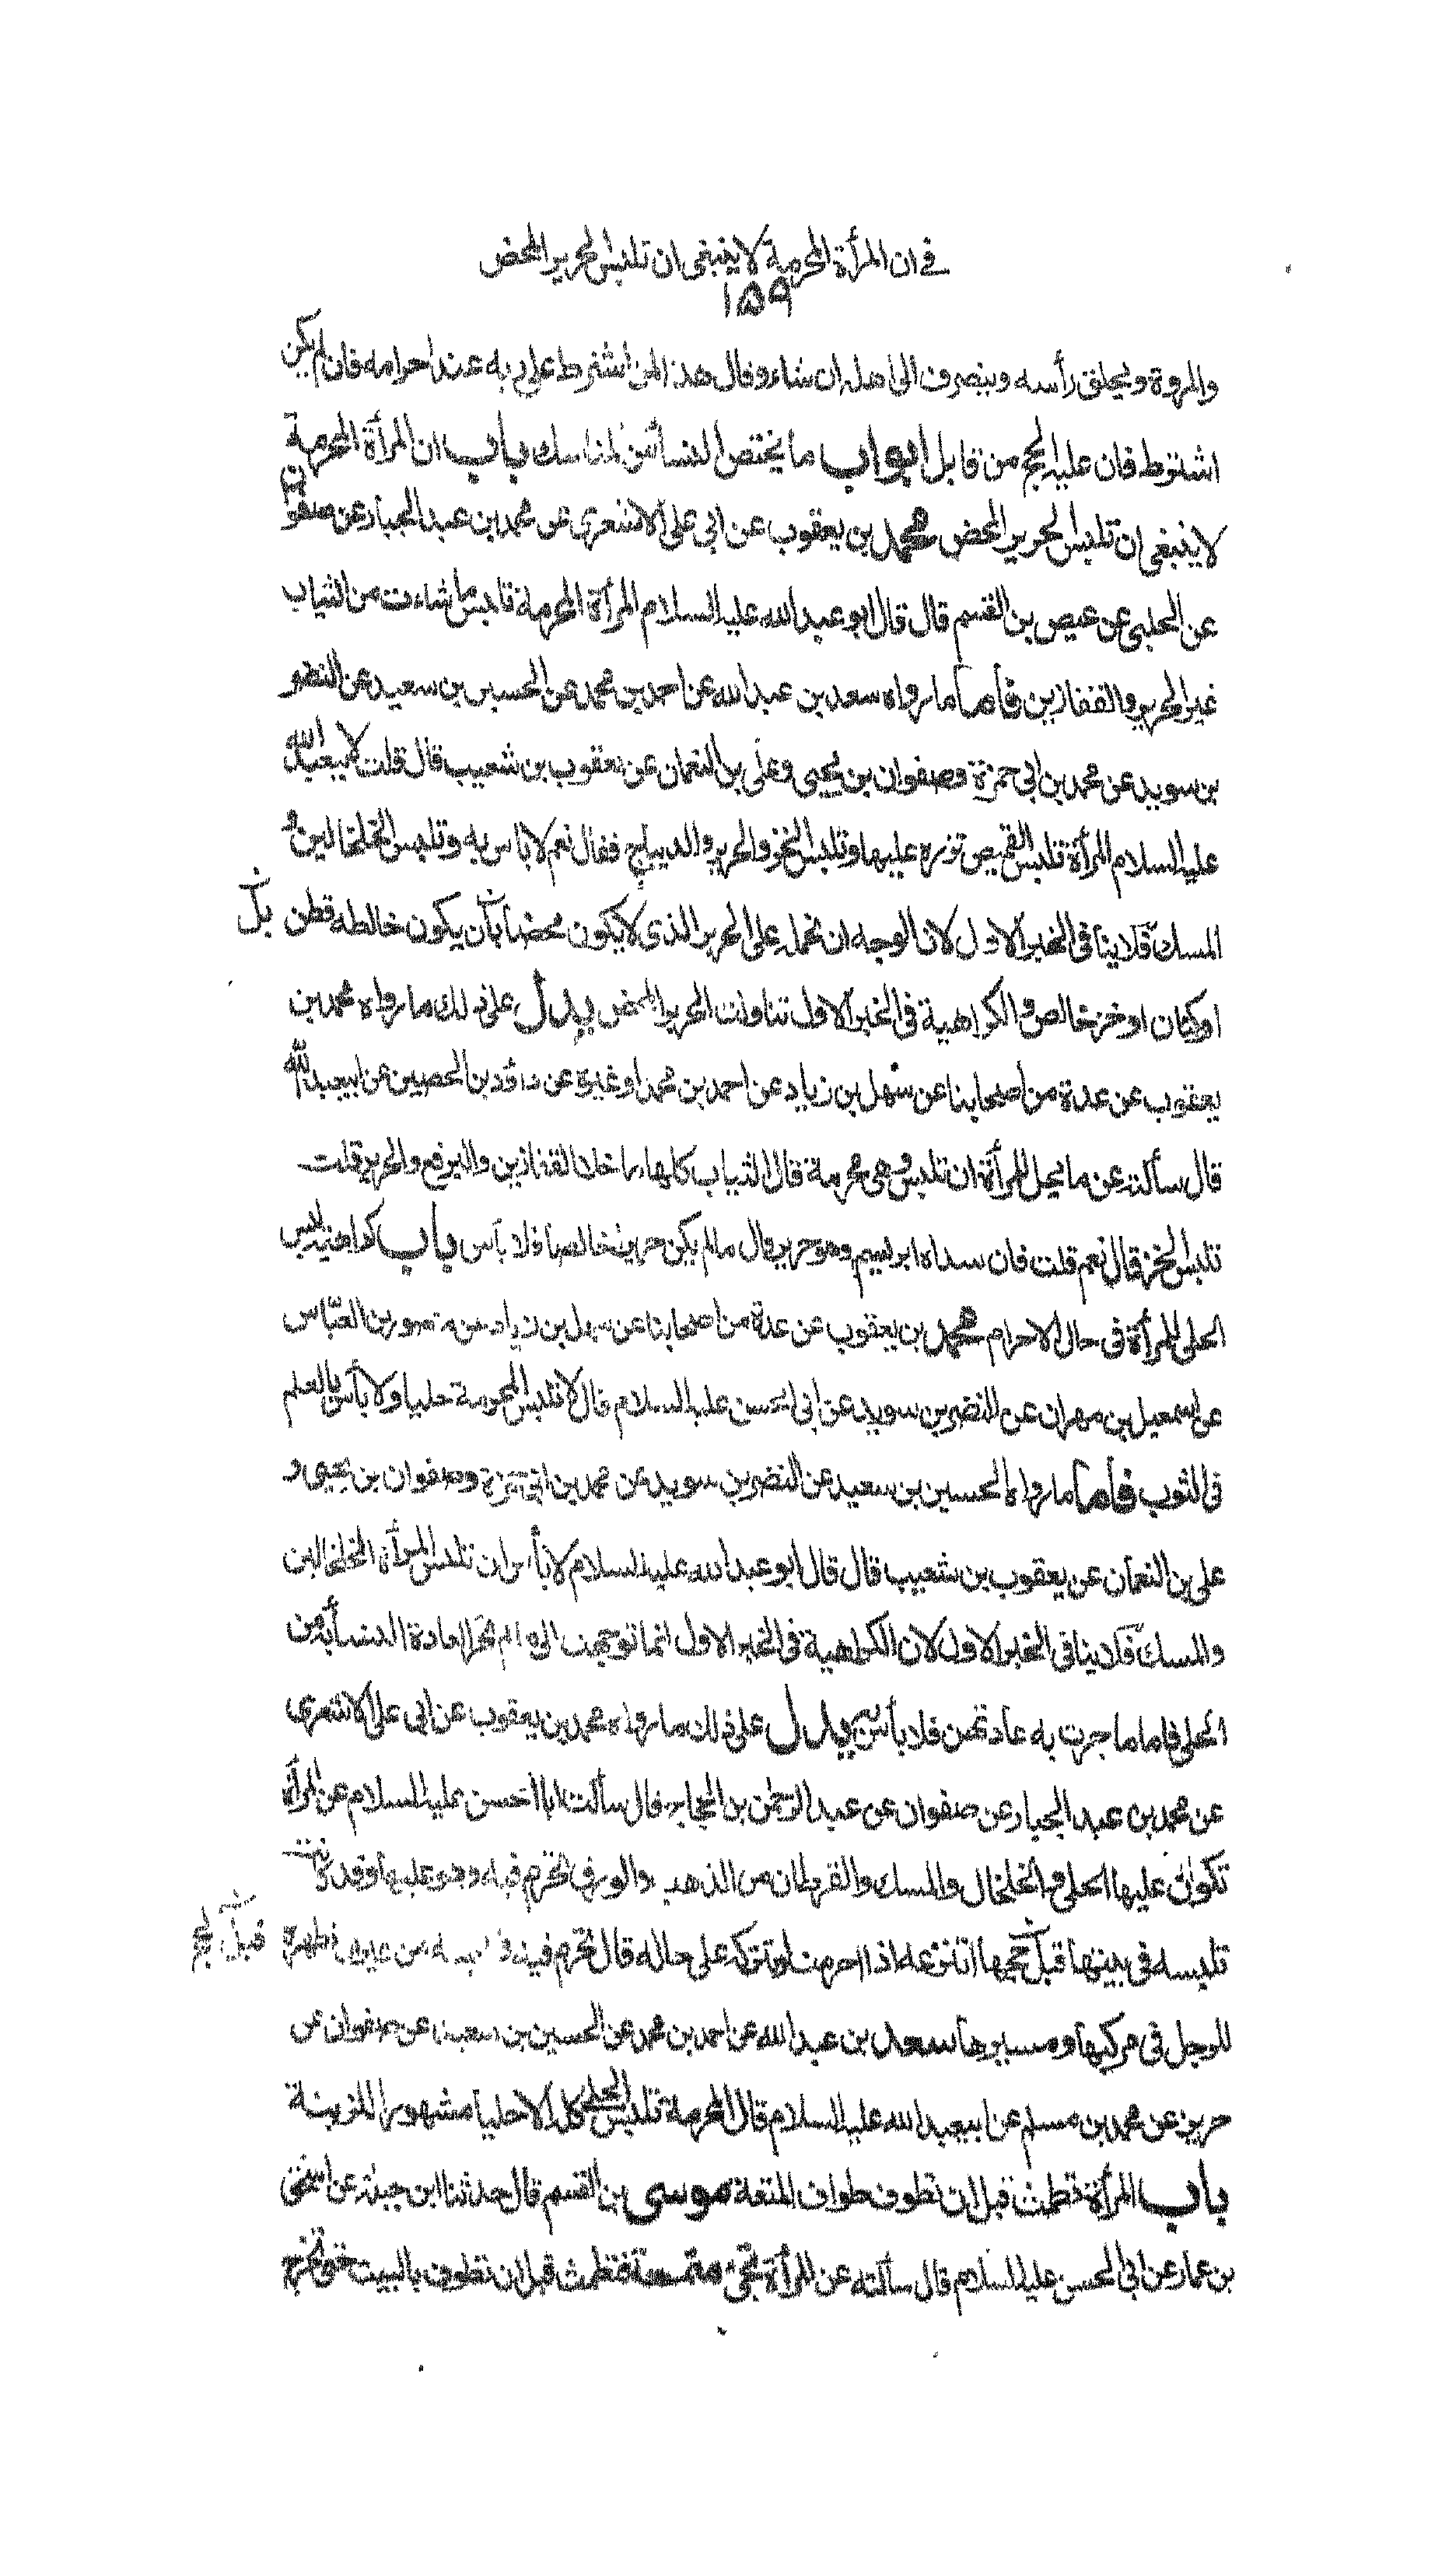 في ان المرأة المحرمة لا ينبغى ان تلبس الحرير المحض
١٥٩
والمروة ويحلق رأسه وينصرف الى اهله ان شاء وقال هذا لمن اشترط على ربه عند احرامه فان لم يكن
اشترط فان عليه الحج من قابل ابواب ما يختص النساء من المناسك باب ان المرأة المحرمة
لا ينبغى ان تلبس الحرير المحض محمد بن يعقوب عن ابى على الاشعرى عن محمد بن عبد الجبار عن صفوان
عن الحلبى عن عيص بن القسم قال قال ابو عبد الله عليه السلام المرأة المحرمة تلبس ما شاءت من الثياب
غير الحرير والقفازين فأما ما رواه سعد بن عبد الله عن احمد بن محمد عن الحسين بن سعيد عن النضر
بن سويد عن محمد بن ابى حمزة وصفوان بن يحيى وعلى بن النعمان عن يعقوب بن شعيب قال قلت لابيعبد الله
عليه السلام المرأة تلبس القميص تزره عليها وتلبس الخز والحرير والديباج فقال نعم لا بأس به وتلبس الخلخالين و
المسك فلا ينافى الخبر الاول لانا الوجه ان نحمله على الحرير الذى لا يكون محضا بأن يكون خالطه قطن بل
او كتان او خز خالص والكراهية فى الخبر الاول تناولت الحرير المحض يدل على ذلك ما رواه محمد بن
يعقوب عن عدة من اصحابنا عن سهل بن زياد عن احمد بن محمد او غيره عن داود بن الحصين عن ابيعبد الله
قال سألته عن ما يحل للمرأة ان تلبس وهى محرمة قال الثياب كلها ما خلا القفازين والبرقع والحرير قلت
تلبس الخز قال نعم قلت فان سداه ابريسم وهو حرير قال ما لم يكن حريرا خالصا فلا بأس باب كراهية لبس
الحلى للمرأة فى حال الاحرام محمد بن يعقوب عن عدة من اصحابنا عن سهل بن زياد عن منصور بن العباس
عن اسمعيل بن مهران عن النضر بن سويد عن ابى الحسن عليه السلام قال لا تلبس المحرمة حليا ولا بأس بالعلم
فى الثوب فأما ما رواه الحسين بن سعيد عن النضر بن سويد عن محمد بن ابى حمزة وصفوان بن يحيى و
على بن النعمان عن يعقوب بن شعيب قال قال ابو عبد الله عليه السلام لا بأس ان تلبس المرأة الخلخالين
والمسك فلا ينافى الخبر الاول لان الكراهية فى الخبر الاول انما توجهت الى ما لم تجر العادة النساء به من
الحلى فاما ما جرت به عادتهن فلا بأس به يدل على ذلك ما رواه محمد بن يعقوب عن ابى على الاشعرى
عن محمد بن عبد الجبار عن صفوان عن عبد الرحمن بن الحجاج قال سألت ابا الحسن عليه السلام عن المرأة
تكون عليها الحلى والخلخال والمسك والقرطان من الذهب والورق تحرم فيه وهو عليها وقد كانت
تلبسه فى بيتها قبل حجها اتنزعه اذا احرمت او تتركه على حاله قال تحرم فيه وتلبسه من غير ان تظهره قبل الحج
للرجل فى مركبها ومسيرها سعد بن عبد الله عن احمد بن محمد عن الحسين بن سعيد عن صفوان عن
حريز عن محمد بن مسلم عن ابيعبد الله عليه السلام قال المحرمة تلبس الحلى كله الا حليا مشهورا للزينة
باب المرأة تطمث قبل ان تطوف طواف المتعة موسى بن القسم قال حدثنا ابن جبلة عن اسحق
بن عمار عن ابى الحسن عليه السلام قال سألته عن المرأة تجئ متمتعة فتطمث قبل ان تطوف بالبيت حتى تخرج